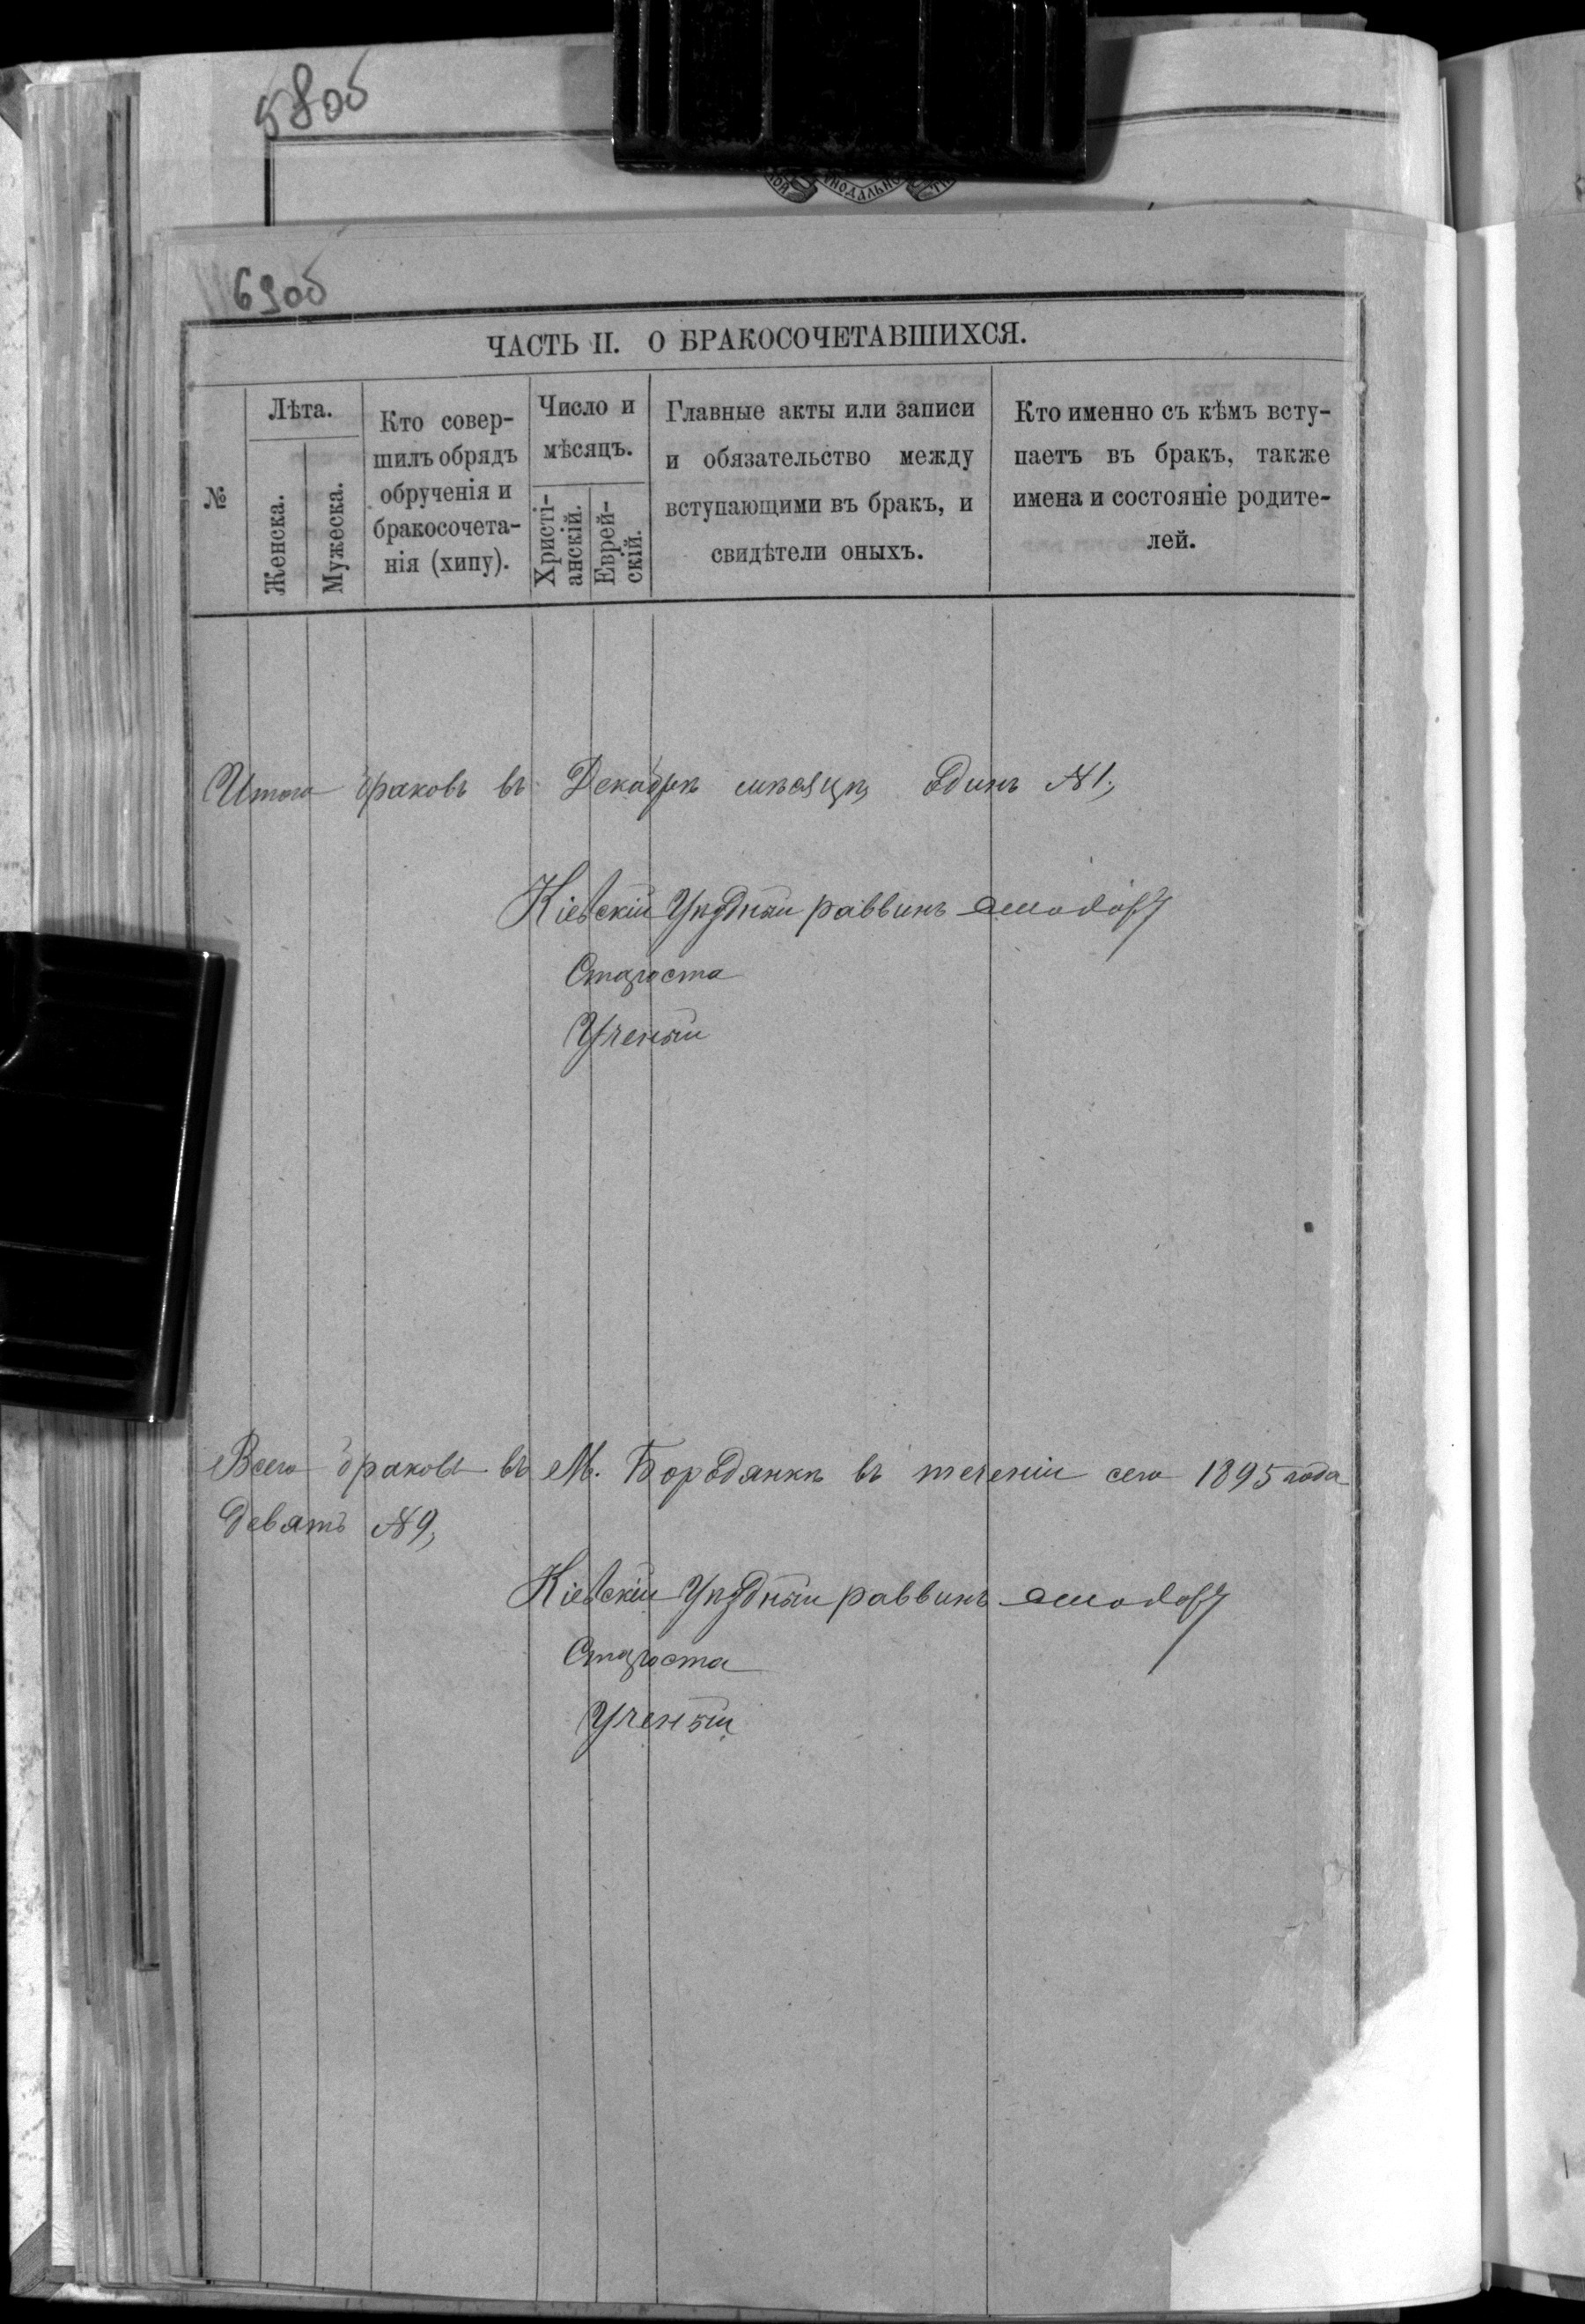 58об
69об
ЧАСТЬ II. О БРАКОСОЧЕТАВШИХСЯ.
№
Лѣта.
Женска.
Мужеска.
Кто совер-
шилъ обрядъ
обрученія и
бракосочета-
нія (хипу).
Число и
мѣсяцъ.
Христі-
анскій.
Еврей-
скій.
Главные акты или записи
и обязательство между
вступающими въ бракъ, и
свидѣтели оныхъ.
Кто именно съ кѣмъ всту-
паетъ въ бракъ, также
имена и состояніе родите-
лей.
Итого браковъ въ Декабрѣ мѣсяцѣ одинъ №1,
Кіевскій Уѣздный раввинъ
Староста
Ученый
Всего браковъ въ М. Бородянкѣ въ теченіи сего 1895 года
девять №9,
Кіевскій Уѣздный раввинъ
Староста
Ученый